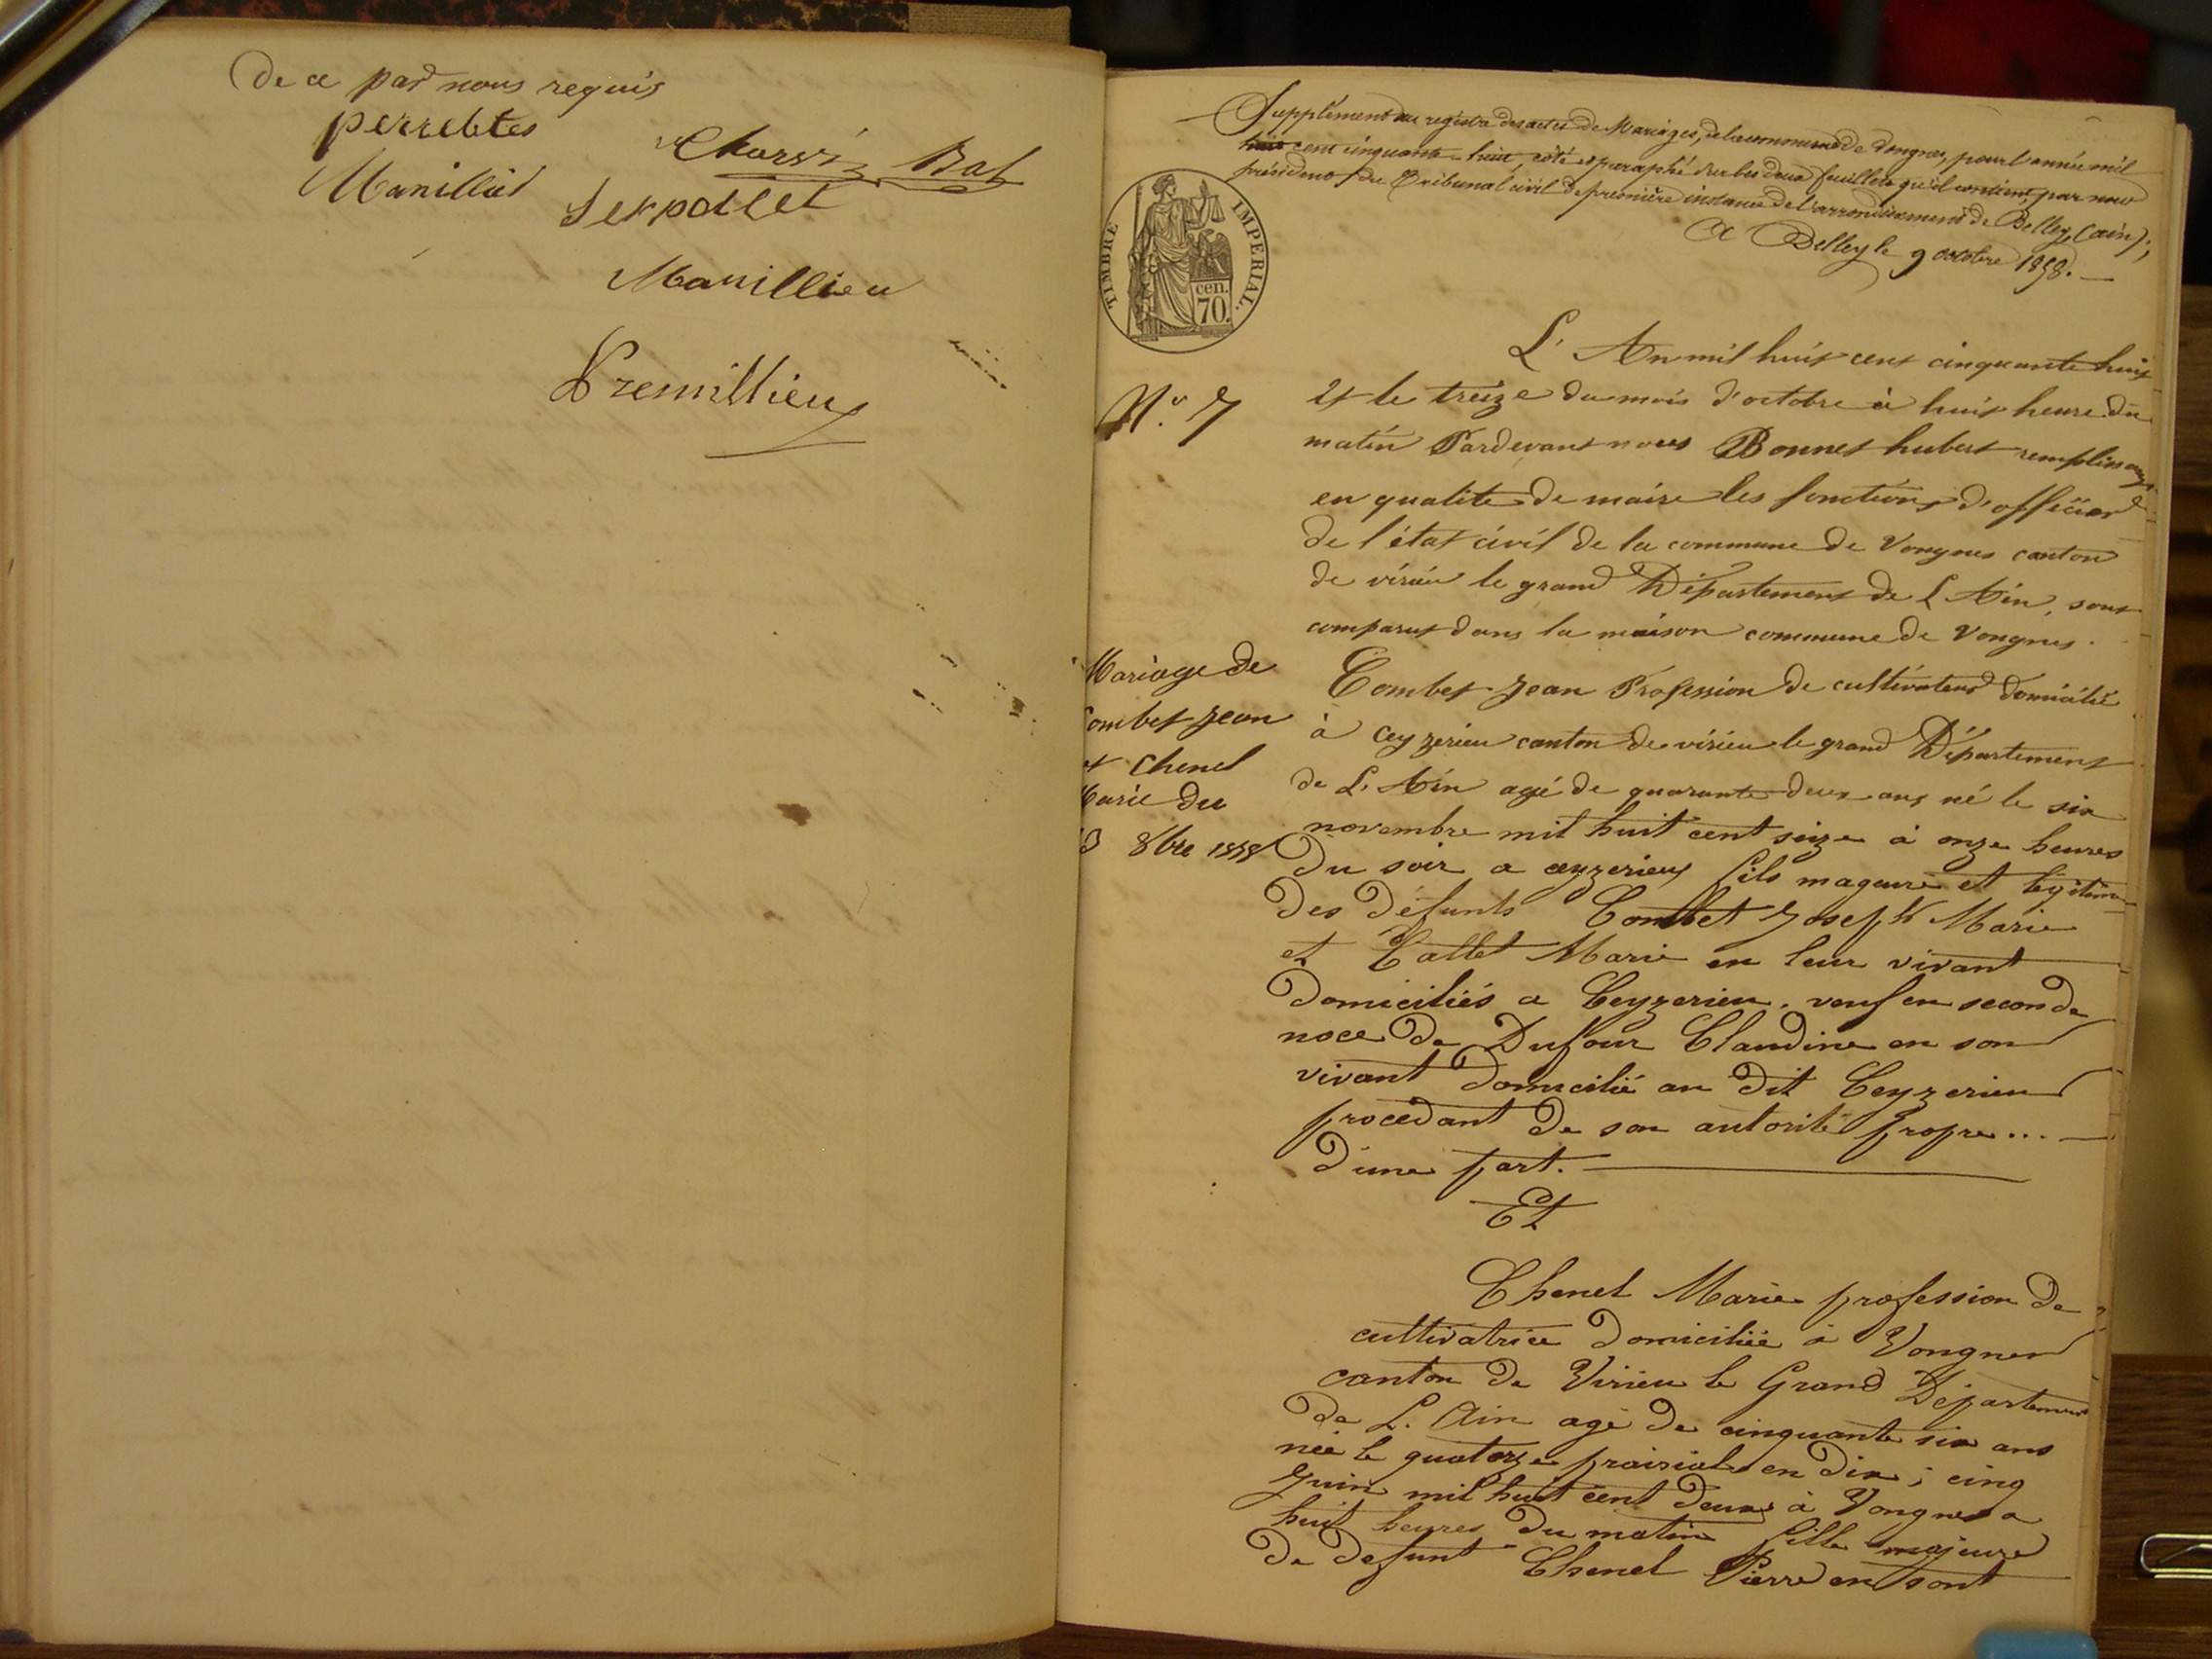 de ce par nous requis
perrebtes
Charvin Bal
Manilliet
Serpollet
Manillieu
Premillieu
Supplément au registre des actes de Mariages, de la commune de Vongnes, pour l'année mil
huit cent cinquante-huit, coté et paraphé sur les deux feuillets qu'il contient, par nous
président du Tribunal civil de première instance de l'arrondissement de Belley (ain);
A Belley le 9 octobre 1858.
TIMBRE IMPERIAL.
cen.
70.
L'An mil huit cent cinquante huit
N.º 7
Et le treize du mois d'octobre à huit heure du
matin Pardevant nous Bonnet hubert remplissant
en qualité de maire les fonctions d'officier
de l'état civil de la commune de Vongnes canton
de virieu le grand Département de L'Ain, sont
comparut dans la maison commune de Vongnes.
Mariage de
Combet Jean
et Chenel
Marie du
13 8bre 1858
Combet Jean Profession de cultivateur domicilié
à Ceyzerieu canton de virieu le grand Département
de L'Ain agé de quarante deux ans né le six
novembre mil huit cent seize à onze heures
du soir a ceyzerieux fils mageure et legitime
des défunts Combet Joseph Marie
et Callet Marie en leur vivant
domiciliés a Ceyzerieu. veuf en seconde
noce de Dufour Claudine en son
vivant domicilié au dit Ceyzerieu
procedant de son autorité propre...
d'une part.
Et
Chenel Marie profession de
cultivatrice domiciliée à Vongnes
canton de Virieu le Grand Département
de L. Ain agé de cinquante six ans
née le quatorze prairial en dix; cinq
Juin mil huit cent deux à Vongnes a
huit heures du matin fille majeure
de defunt Chenel Pierre en sont